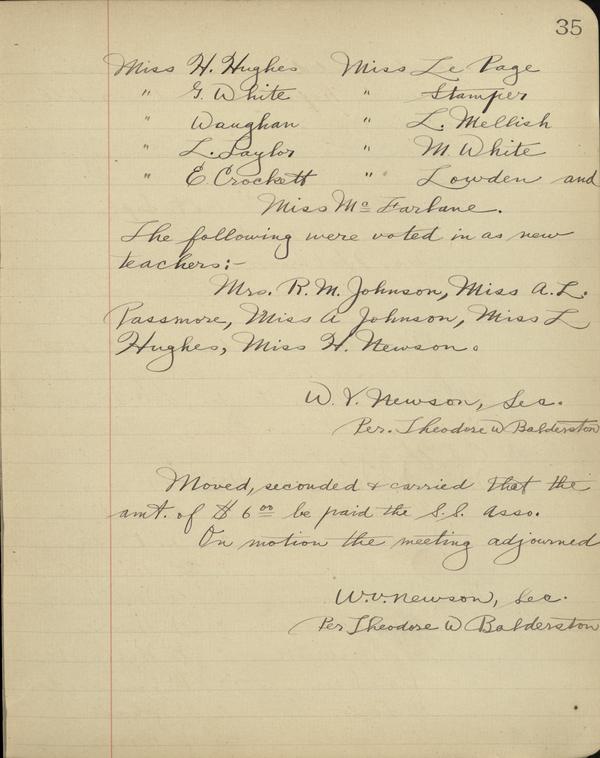 35
Miss H. Hughes Miss Le Page
" G. White " Stamper
" Waughan " L. Mellish
" L. Taylor " M. White
" E. Crockett " Lowden and
Miss Mc Farlane.
The following were voted in as new
teachers:-
Mrs. R. M. Johnson, Miss A. L.
Passmore, Miss A Johnson, Miss L
Hughes, Miss H. Newson.
W. V. Newson, Sec.
Per. Theodore W Balderston
Moved, seconded & carried that the
amt. of $6 00 be paid the S.S. Asso.
On motion the meeting adjourned
W. V. Newson, Sec.
Per Theodore W Balderston